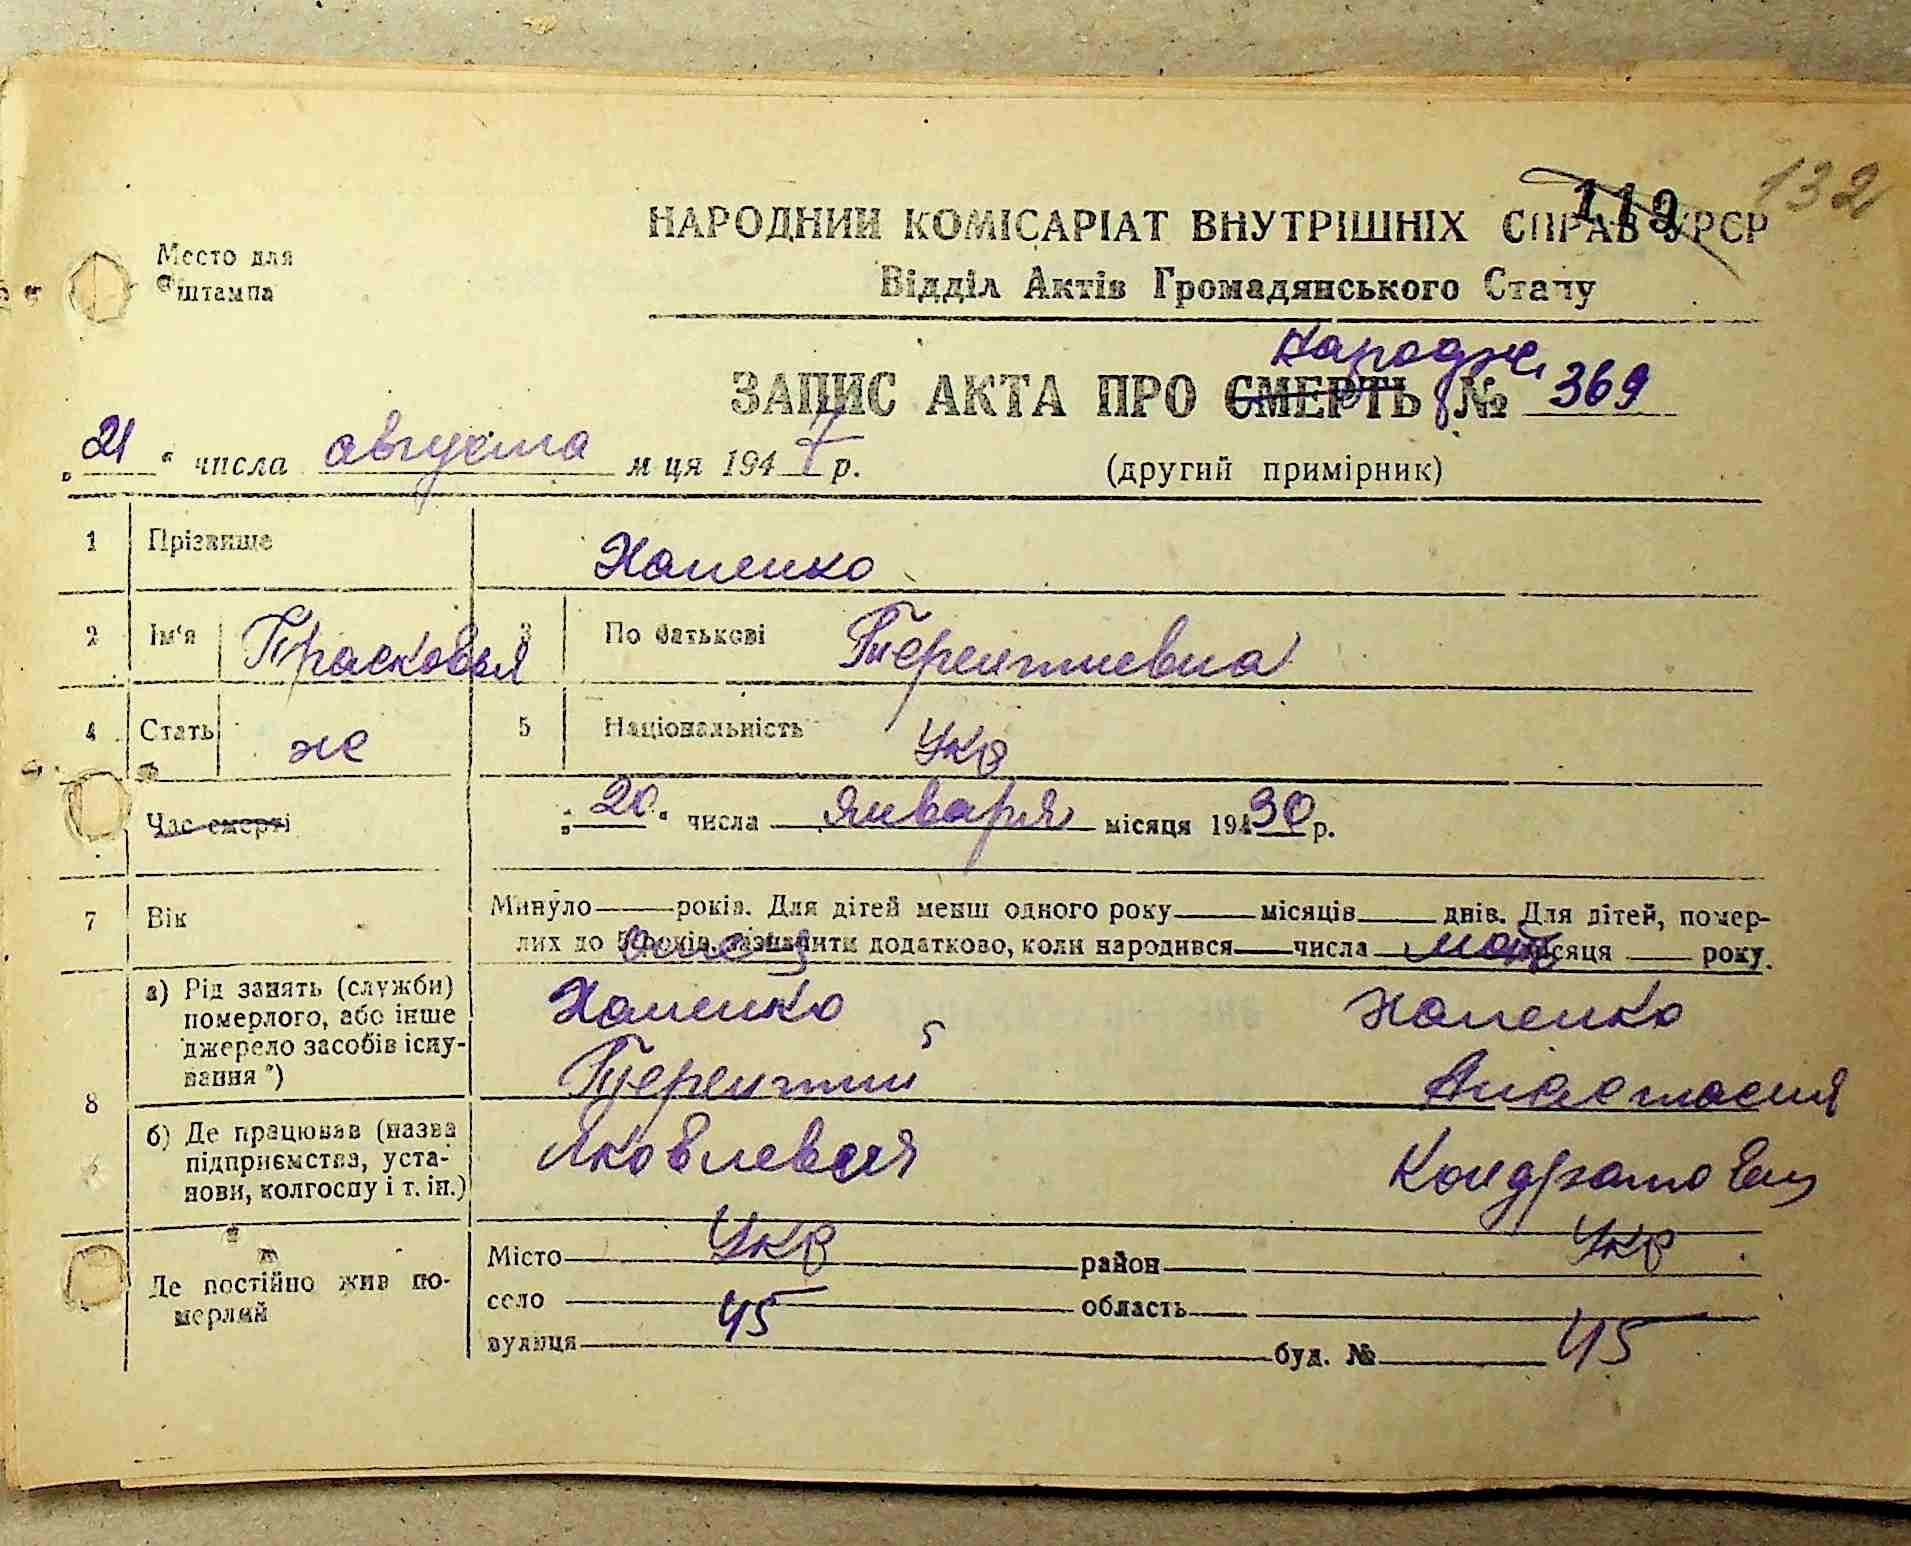 132
112
НАРОДНИЙ КОМІСАРІАТ ВНУТРІШНІХ СПРАВ УРСР
Место для
штампа
Відділ Актів Громадянського Стану
Народже
ЗАПИС АКТА ПРО СМЕРТЬ № 369
„21“ числа августа м-ця 1947 р. (другий примірник)
1 Прізвище Хапенко
2 Ім'я Прасковья 3 По батькові Терентиевна
4 Стать же 5 Національність Укр
Час смерті „20“ числа января місяця 1930 р.
7 Вік Минуло—років. Для дітей менш одного року—місяців—днів. Для дітей, помер-
лих до 5 років, зазначити додатково, коли народився—числа—місяця—року.
отец мать
8 а) Рід занять (служби)
померлого, або інше
джерело засобів існу-
вання *)
Хапенко Хапенко
Терентий Анастасия
б) Де працював (назва
підприємства, уста-
нови, колгоспу і т. ін.)
Яковлевич Кондратовн
Де постійно жив по-
мерлий
Місто Укр район Укр
село 45 область 45
вулиця буд. №